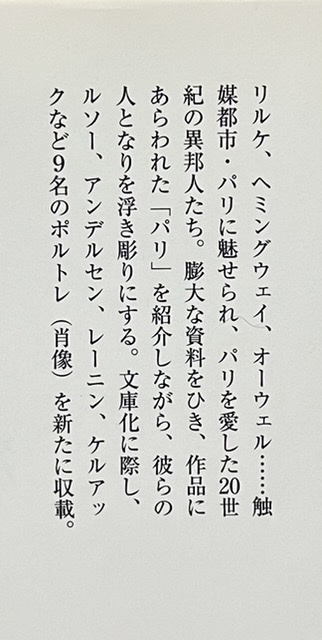 リルケ、ヘミングウェイ、オーウェル……触
媒都市・パリに魅せられ、パリを愛した20世
紀の異邦人たち。膨大な資料をひき、作品に
あらわれた「パリ」を紹介しながら、彼らの
人となりを浮き彫りにする。文庫化に際し、
ルソー、アンデルセン、レーニン、ケルアッ
クなど9名のポルトレ（肖像）を新たに収載。